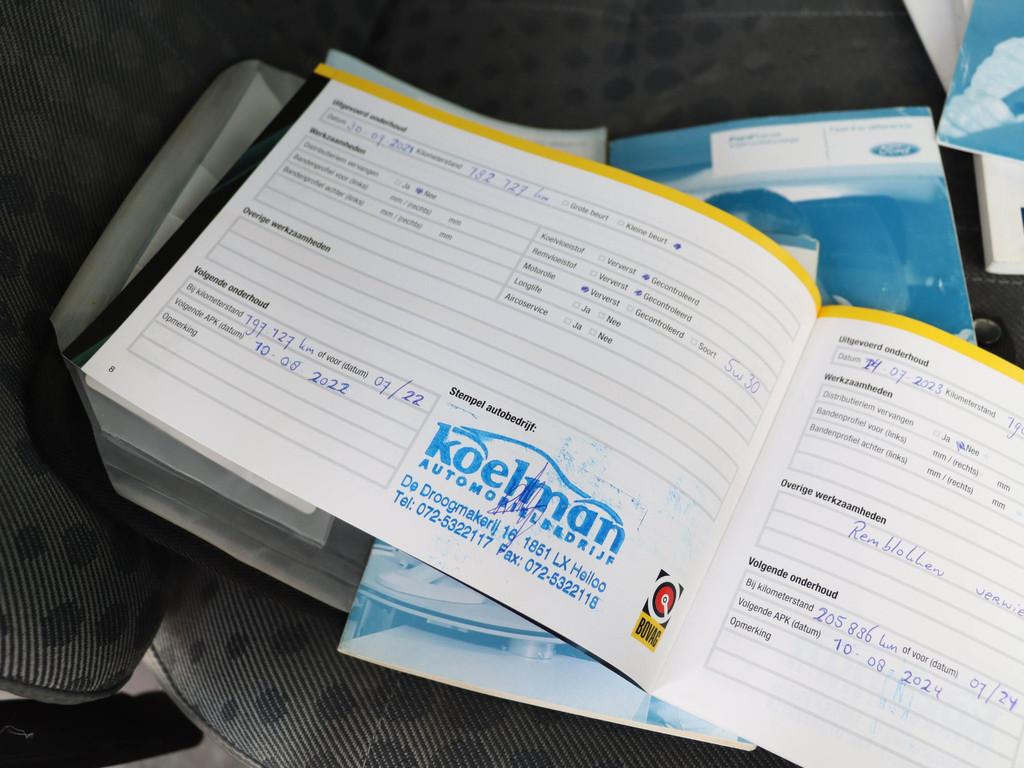 Uitgevoerd onderhoud
Datum 30-07-2021 Kilometerstand 182 727 km □ Grote beurt □ Kleine beurt
Werkzaamheden
Distributieriem vervangen □ Ja Nee
Bandenprofiel voor (links) mm / (rechts) mm
Bandenprofiel achter (links) mm / (rechts) mm
Koelvloeistof □ Ververst Gecontroleerd
Remvloeistof □ Ververst Gecontroleerd
Motorolie Ververst □ Gecontroleerd □ Soort 5w30
Longlife □ Ja □ Nee
Aircoservice □ Ja □ Nee
Overige werkzaamheden
Volgende onderhoud
Bij kilometerstand 197.727 km of voor (datum) 07/22
Volgende APK (datum) 10-08-2022
Opmerking
8
Stempel autobedrijf:
koelman
AUTOMOBIELBEDRIJF
De Droogmakerij 16 1851 LX Heiloo
Tel: 072-5322117 Fax: 072-5322118
BOVAG
Uitgevoerd onderhoud
Datum 14-07 2023 Kilometerstand 190
Werkzaamheden
Distributieriem vervangen □ Ja Nee
Bandenprofiel voor (links) mm / (rechts) mm
Bandenprofiel achter (links) mm / (rechts) mm
Overige werkzaamheden
Remblokken verwie
Volgende onderhoud
Bij kilometerstand 205.886 km of voor (datum) 07/24
Volgende APK (datum) 10-08-2024
Opmerking
Ford